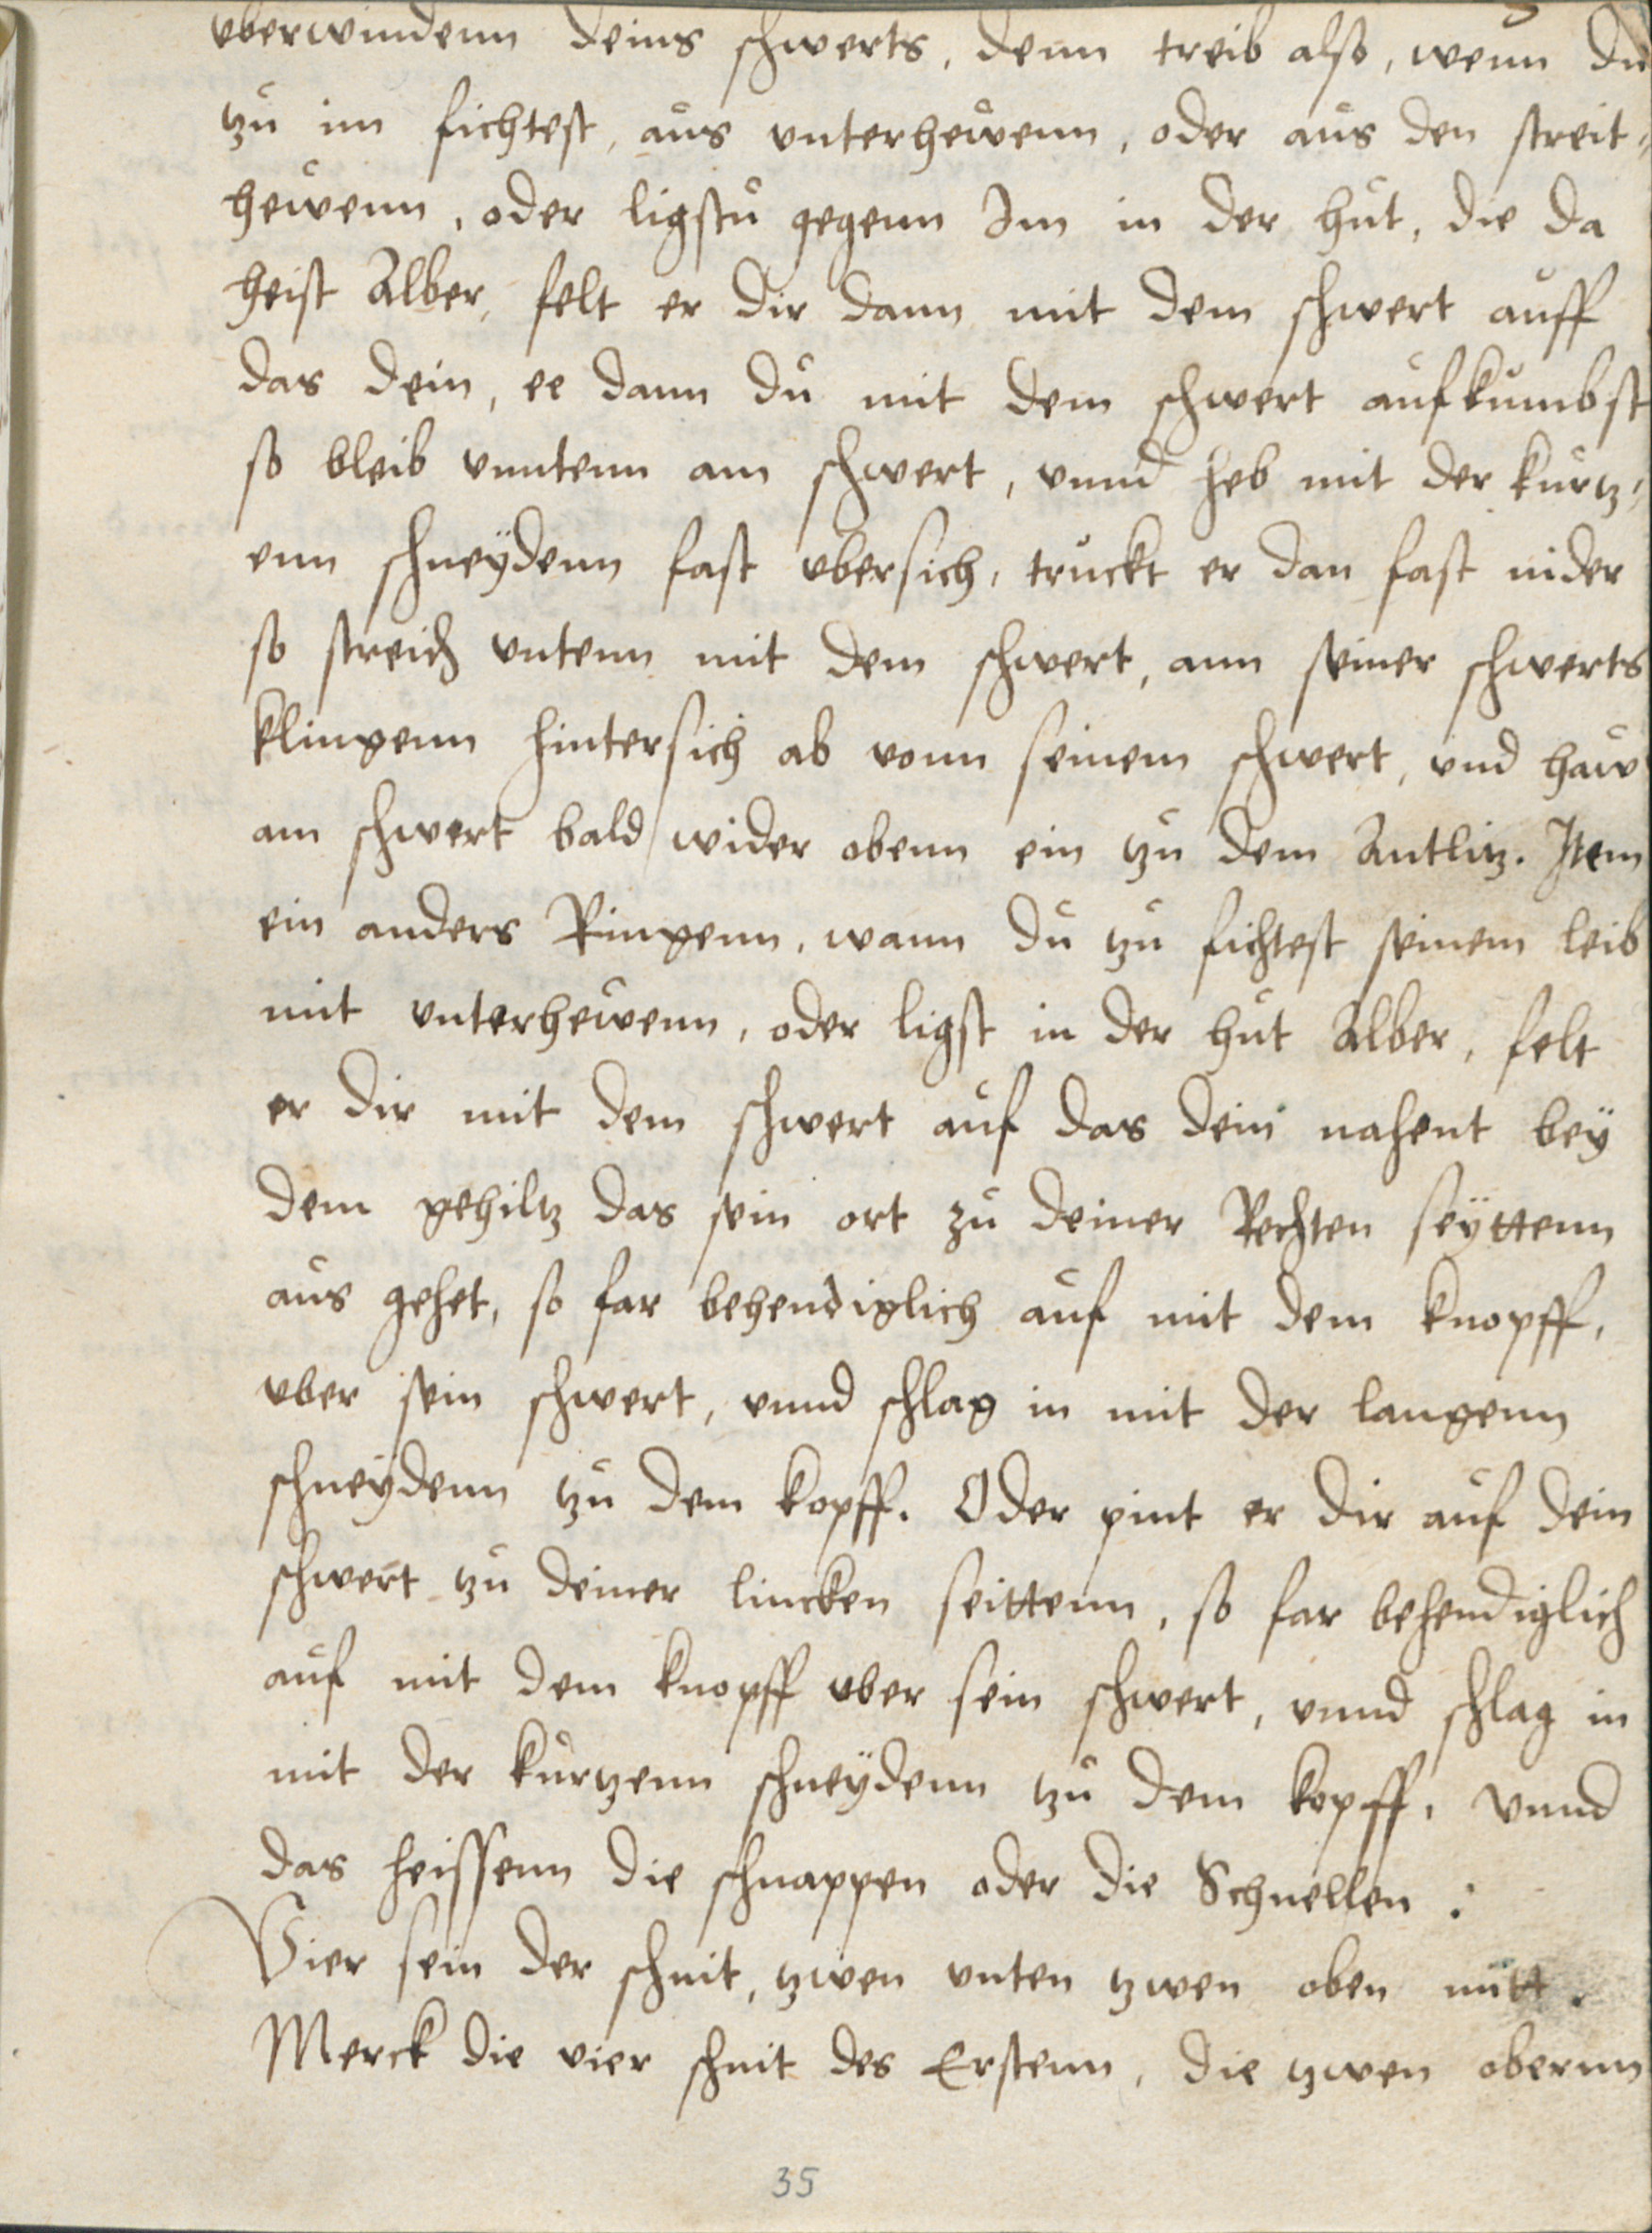 vberwindenn deins schwerts, denn treib also, wenn du
tzu im fichtest, aus vnterhewenn, oder aus den streit=
hewenn, oder ligstu gegenn Im in der hut, die da
heist Alber, felt er dir dann mit dem schwert auff
das dein, ee dann du mit dem schwert aufkumbst
so bleib vnntenn am schwert, vnnd heb mit der kurtz=
enn schneÿdenn fast vbersich, truckt er dan fast nider
so streich vntenn mit dem schwert, ann seiner schwerts
klingenn hintersich ab vonn seinem schwert, und haw
am schwert bald wider obenn ein tzu dem Antlitz. Item
ein anders Ringenn, wann du tzu fichtest seinem leib
mit vnterhewenn, oder ligst in der hut Alber, felt
er dir mit dem schwert auf das dein nahent beÿ
dem gehiltz das sein ort zu deiner Rechten seÿttenn
aus gehet, so far behendiglich auf mit dem knopff,
vber sein schwert, vnnd schlag in mit der langenn
schneÿdenn tzu dem kopff. Oder pint er dir auf dein
schwert tzu deiner lincken seittenn, so far behendiglich
auf mit dem knopff vber sein schwert, vnnd schlag in
mit der kurtzenn schneÿdenn tzu dem kopff, Vnnd
das heissenn die schnappen oder die Schnellen :
Vier sein der schnit, tzwen vnten tzwen oben mitt.
Merck die vier schnit des Erstenn, die tzwen obernn
35